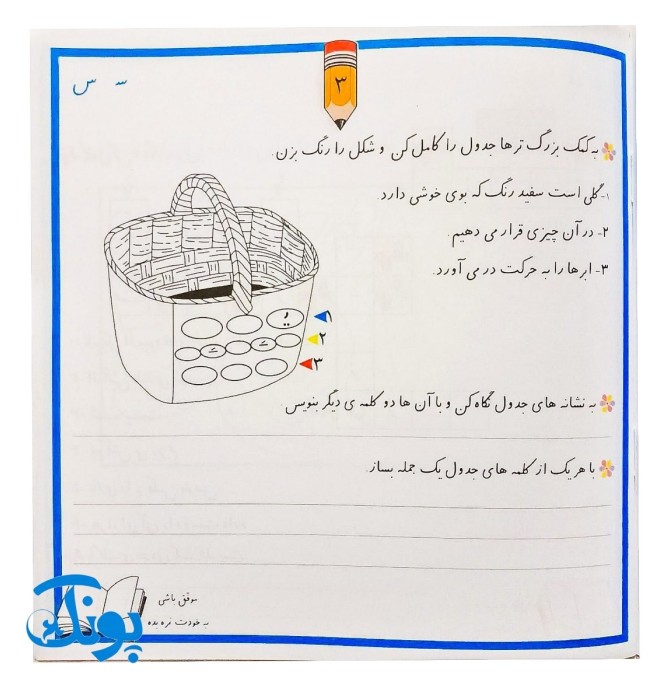 سـ س
۳
به کمک بزرگ ترها جدول را کامل کن و شکل را رنگ بزن.
۱- گلی است سفید رنگ که بوی خوشی دارد.
۲- در آن چیزی قرار می دهیم.
۳- ابرها را به حرکت در می آورد.
یـ
۱
۲
۳
به نشانه های جدول نگاه کن و با آن ها دو کلمه ی دیگر بنویس.
با هر یک از کلمه های جدول یک جمله بساز.
موفق باشی
به خودت نمره بده
پونک